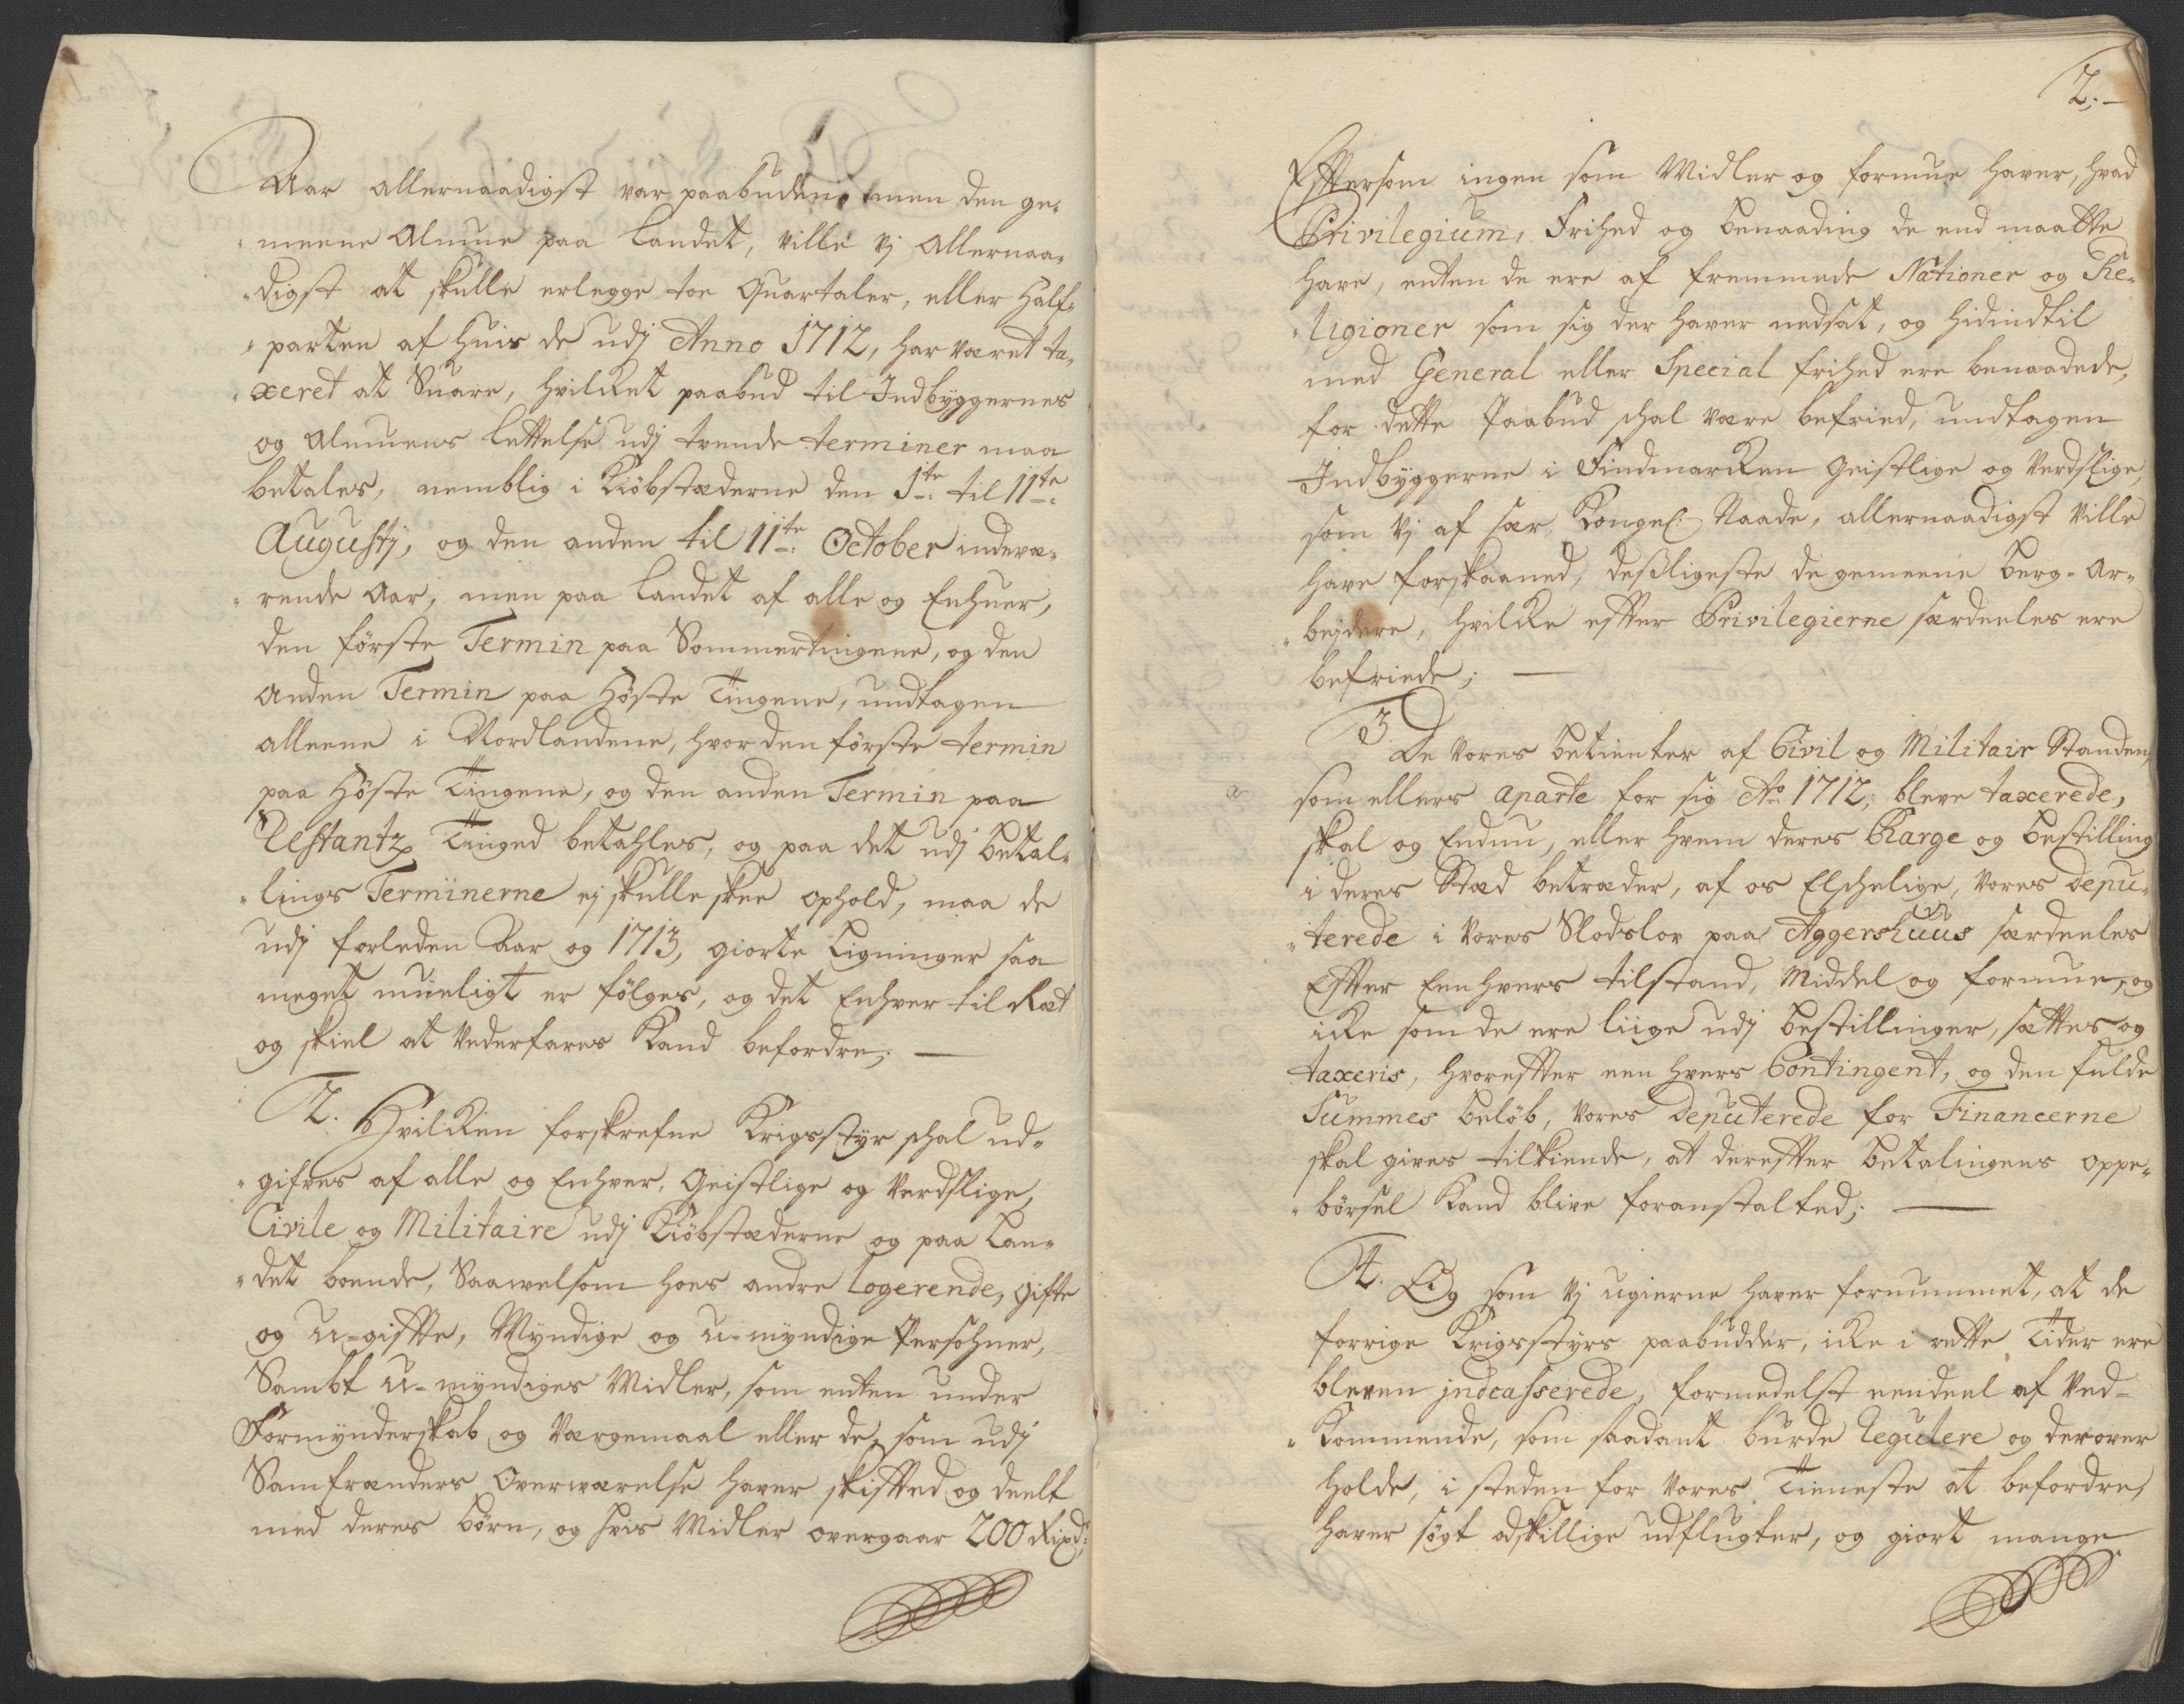 Aar allernaadigst var paabuden, men den ge-
meene Almue paa Landet, ville vj allernaa-
digst at skulle erlegge toe Quartaler, eller Half-
parten af huis de udj Anno 1712, har været ta-
xeret at Suare, hvilket paabud til Indbyggernes
og Almuens lettelse udj tvende terminer maa
betales, nemblig i Kiøbstæderne den 1te til 11te
Augustj, og den anden til 11te October indevæ-
rende Aar, men paa Landet af alle og Enhuer,
den første Termin paa Sommertingene, og den
anden Termin paa Høste Tingene, undtagen
alleene i Nordlandene, hvor den første termin
paa Høste Tingene, og den anden Termin paa
Restantz Tinged betahles, og paa det udj betal-
lings Terminerne ej skulle skee ophold, maa de
udj forleden Aar og 1713, giorte Ligninger saa
meget mueligt er følges, og det Enhver til Ræt
og skiel at vederfares Kand befordre;
2. Hvilken forskrefne Krigsstyr schal ud-
gifves af alle og Enhver, Geistlige og Verdslige,
Civile og Militaire udj Kiøbstæderne og paa Lan-
det boende, Saawelsom hoes andre logerende, gifte
og u-giffte, Myndige og u-myndige Persohner,
Sambt u-myndiges Midler, som enten under
Formynderskab og Værgemaal eller de, som udj
Samfrænders Overværelse haver skifted og deelt
med deres børn, og hvis Midler overgaar 200 Rixd;
2.
Efftersom ingen som Midler og formue haver, hvad
Privilegium, Frihed og benaading de end maatte
have, enten de ere af fremmede Nationer og Re-
ligioner som sig der haver nedsat, og hidindtil
med General eller Special frihed ere benaadede,
for dette Paabud schal være befried, undtagen
Indbyggerne i Findmarken Geistlige og Verdslige,
som vj af sær Kongel: Naade, allernaadigst ville
have forskaaned, desligeste de gemeene Berg-Ar-
bejdere, hvilke effter Privilegierne særdeeles ere
befriede;
3. De vores betienter af Civil og Militair Standen,
som ellers aparte for sig Ao 1712, bleve taxerede,
skal og Endnu, eller hvem deres Charge og bestilling
i deres Stæd betræder, af os Elschelige, vores depu-
terede i vores Slodslov paa Aggershuus særdeeles
Effter Eenhvers tilstand, Middel og formue, og
icke som de ere liige udj bestillinger, sættes og
taxeris, hvorefter een hvers Contingent, og den fulde
Summes beløb, vores deputerede for Financerne
skal gives tilkiende, at derefter betalingens oppe-
børsel Kand blive foranstalted;
4. Og som vj ugierne haver fornummet, at de
forrige Krigsstyrs paabudder, icke i rette Tider ere
bleven jndcasserede, formedelst eendeel af Ved-
kommende, som saadant burde regulere og derover
holde, i steden for vores Tieneste at befordre,
haver søgt adskillige udflugter, og giort mange